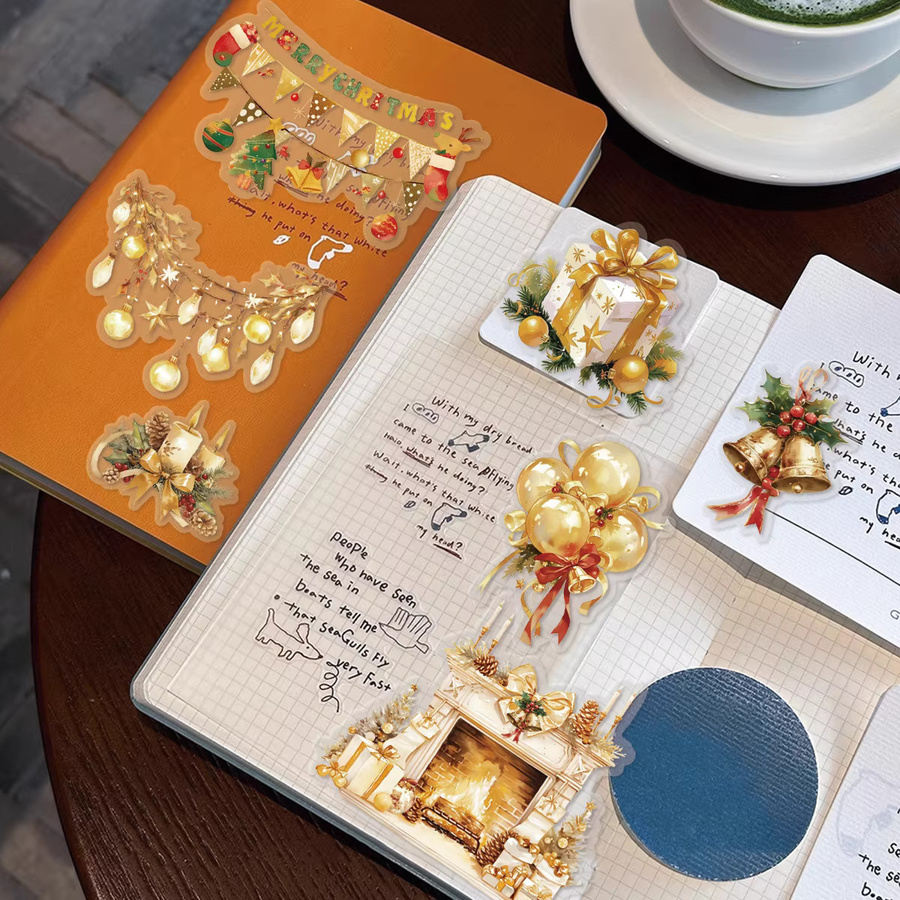 MERRY CHRISTMAS
With my
he doing?
Wait, what's that white
thing he put on
my head?
With my dry bread
I
came to the sea pflying
Halo, what's he doing?
Wait, what's that white
thing he put on
my head?
people
who have seen
the sea in
boats tell me
that seaGulls Fly
very Fast
With
came to the
what's he do
what's that
he put on
my head
G
the sea
boa